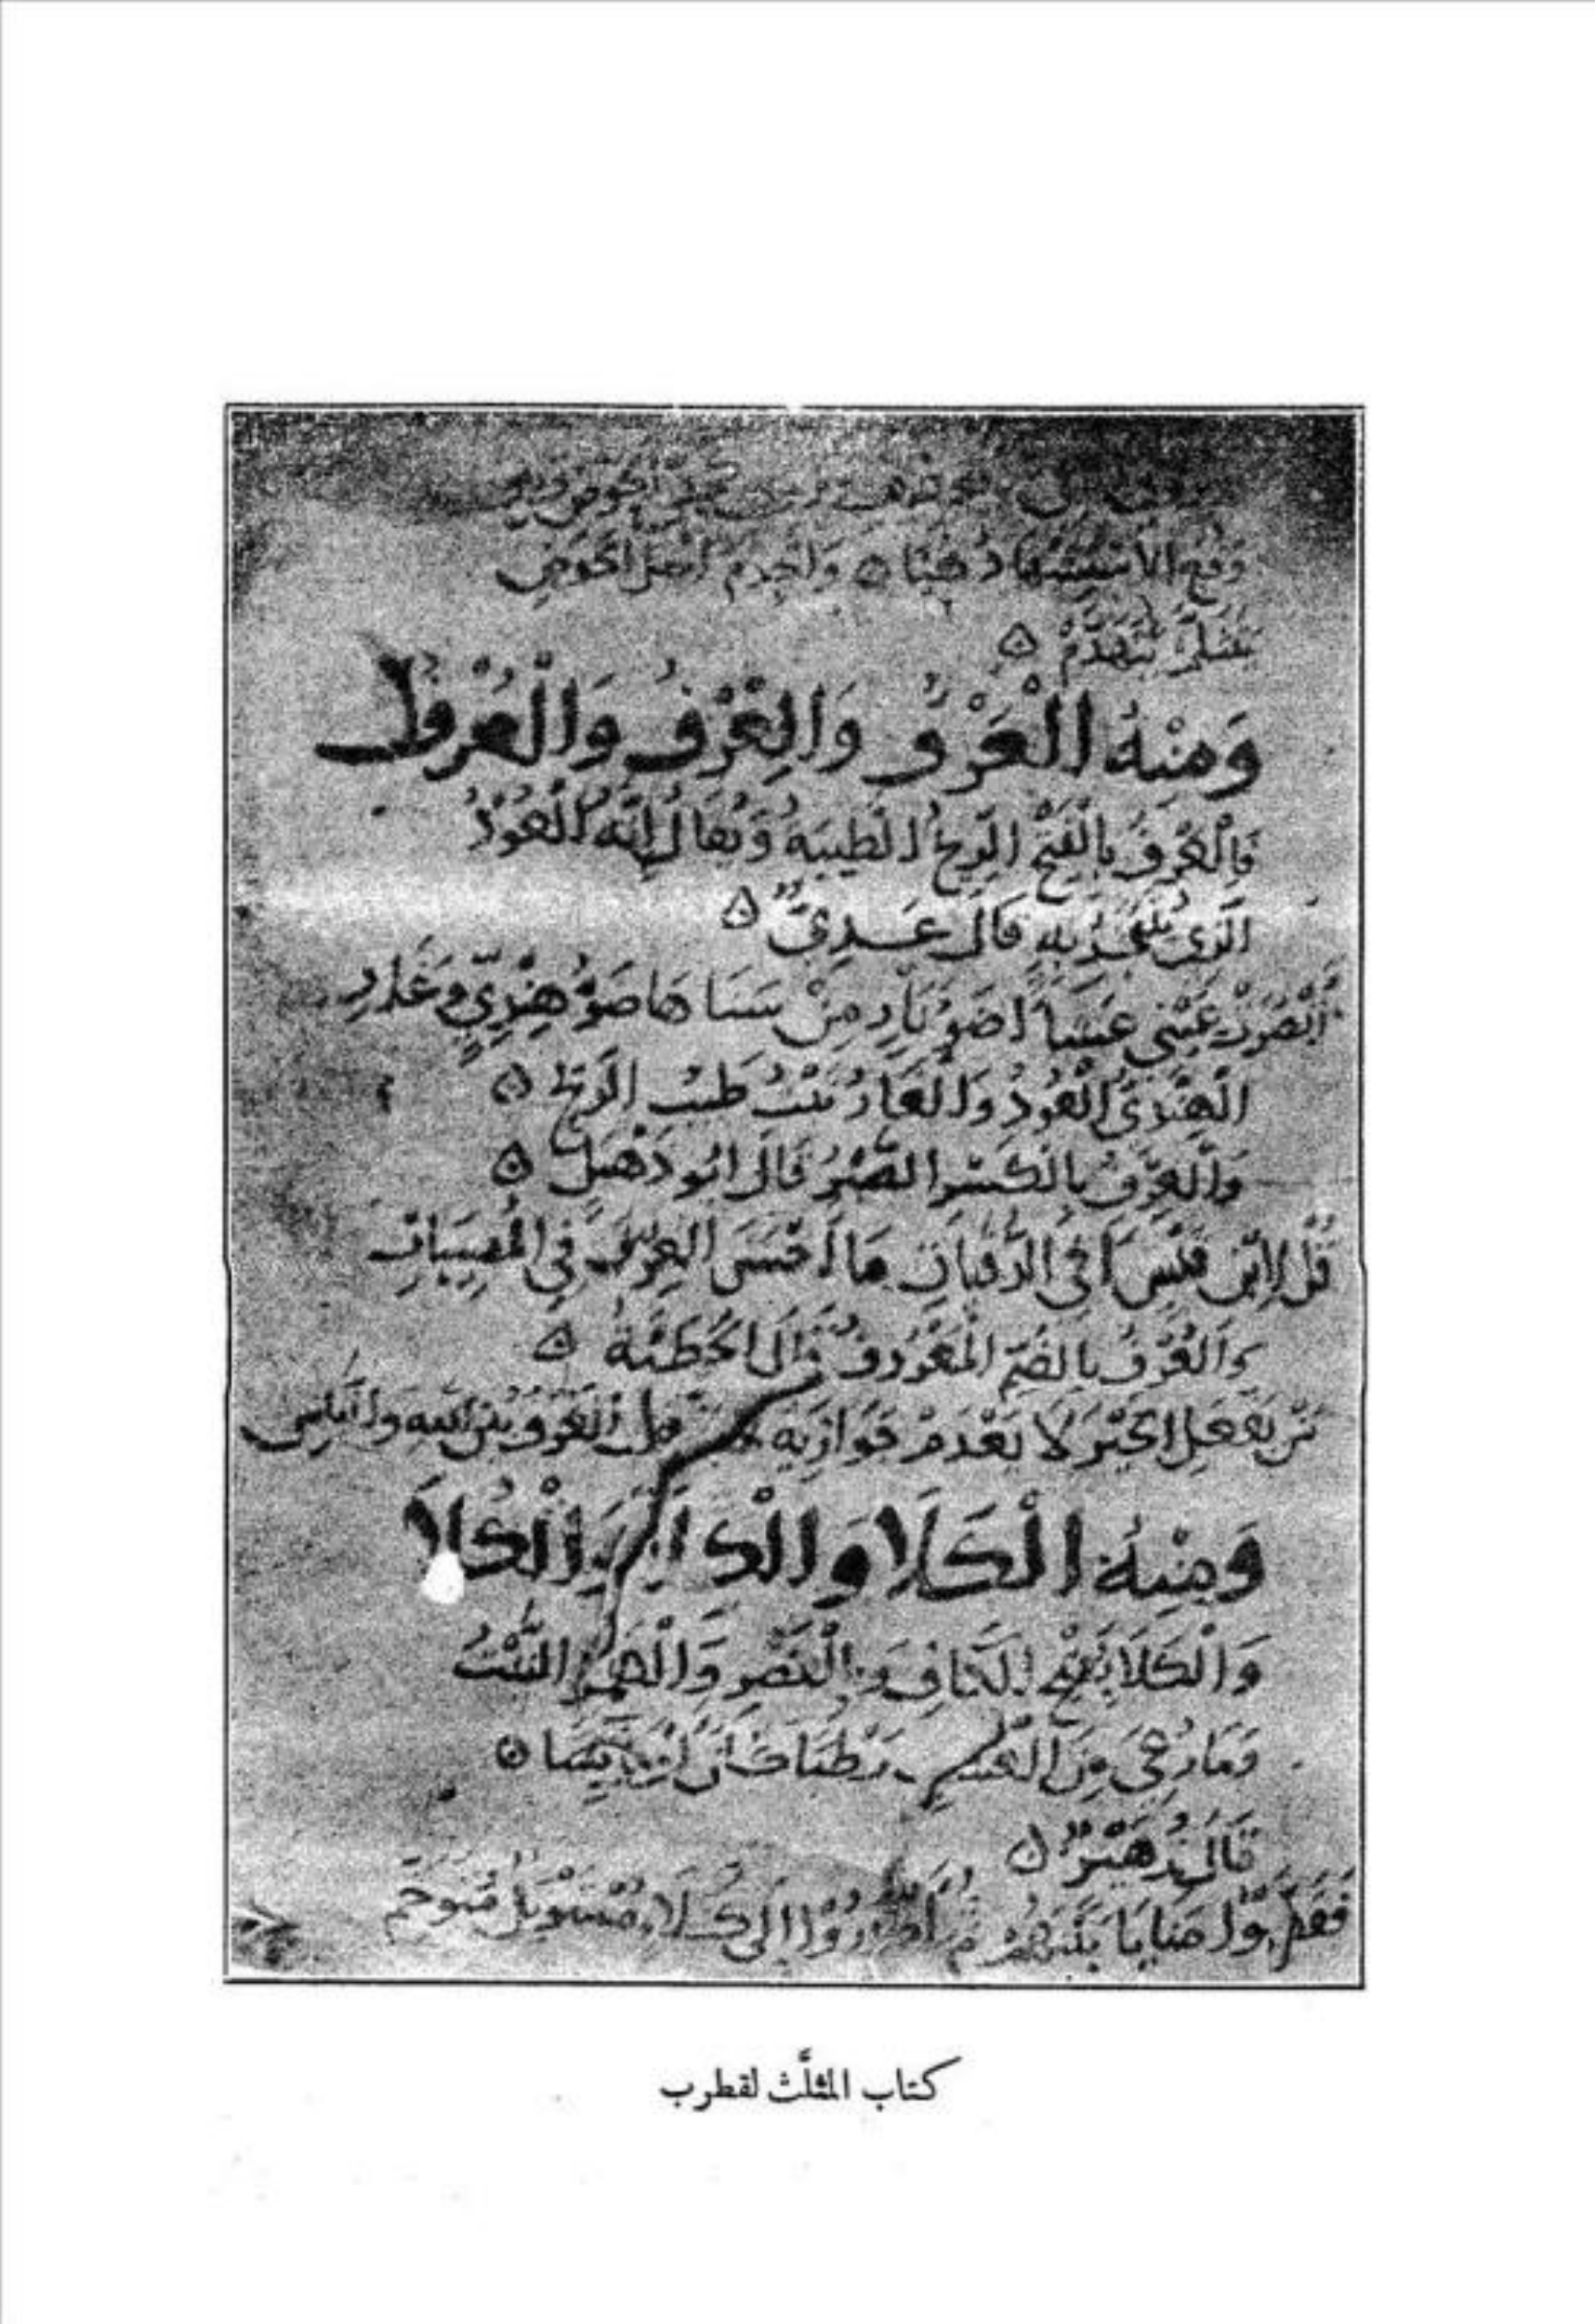 وقع الاستشهاد هنا ۞ والجذم اصل الحوض
يتثلم يتهدم ۞
وَمِنْهُ الْعَرْفُ وَالْعِرْفُ وَالْعُرْفُ
فَالْعَرْفُ بِالْفَتْحِ الرِّيحُ الطَّيِّبَةُ وَيُقَالُ إِنَّهُ الْعُوْدُ
الَّذِي يُتَبَخَّرُ بِهِ قَالَ عَدِيٌّ ۞
أَبْصَرَتْ عَيْنِي عِشَاءً ضَوْءَ نَارٍ مِنْ سَنَاهَا ضَوْءُ هِنْدِيٍّ وَغَارِ
الْهِنْدِيُّ الْعُوْدُ وَالْغَارُ نَبْتٌ طَيِّبُ الرِّيحِ ۞
وَالْعِرْفُ بِالْكَسْرِ الصَّبْرُ قَالَ أَبُو دَهْبَلٍ ۞
قُلْ لِابْنِ قَيْسٍ أَخِي الرُّقَيَّاتِ مَا أَحْسَنَ الْعِرْفَ فِي الْمُصِيبَاتِ
وَالْعُرْفُ بِالضَّمِّ الْمَعْرُوفُ قَالَ الْحُطَيْئَةُ ۞
مَنْ يَفْعَلِ الْخَيْرَ لَا يَعْدَمْ جَوَازِيَهُ الْعُرْفُ بَيْنَ اللهِ وَالنَّاسِ
وَمِنْهُ الْكَلَا وَالْكِلَا وَالْكُلَا
وَالْكَلَا بِفَتْحِ الْكَافِ وَالْقَصْرِ وَالْهَمْزِ النَّبْتُ
وَمَا رُعِيَ مِنَ الْعُشْبِ رَطْبًا كَانَ أَوْ يَابِسًا ۞
قَالَ زُهَيْرٌ ۞
فَقَضَّوْا مَنَايَا بَيْنَهُمْ ثُمَّ أَصْدَرُوْا إِلَى كَلَاءٍ مُسْتَوْبَلٍ مُتَوَخَّمِ
كتاب المثلَّث لقطرب